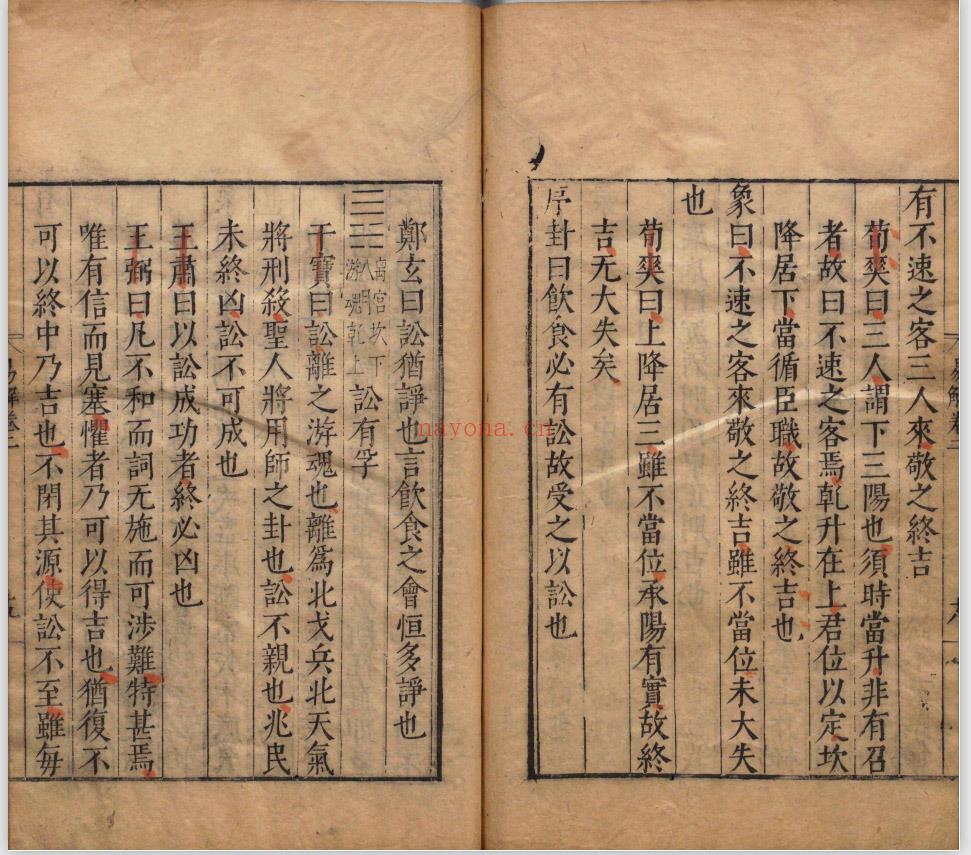 有不速之客三人來敬之終吉
荀爽曰三人謂下三陽也須時當升非有召
者故曰不速之客焉乹升在上君位以定坎
降居下當循臣職故敬之終吉也
象曰不速之客來敬之終吉雖不當位未大失
也
荀爽曰上降居三雖不當位承陽有實故終
吉无大失矣
序卦曰飲食必有訟故受之以訟也
鄭玄曰訟猶諍也言飲食之會恒多諍也
離宮坎下
乾上
游魂
訟有孚
干寶曰訟離之游魂也離爲戈兵此天氣
將刑殺聖人將用師之卦也訟不親也兆民
未終凶訟不可成也
王肅曰以訟成功者終必凶也
王弼曰凡不和而訟无施而可涉難特甚焉
唯有信而見塞懼者乃可以得吉也猶復不
可以終中乃吉也不閉其源使訟不至雖每
易解卷二
nayona.cn